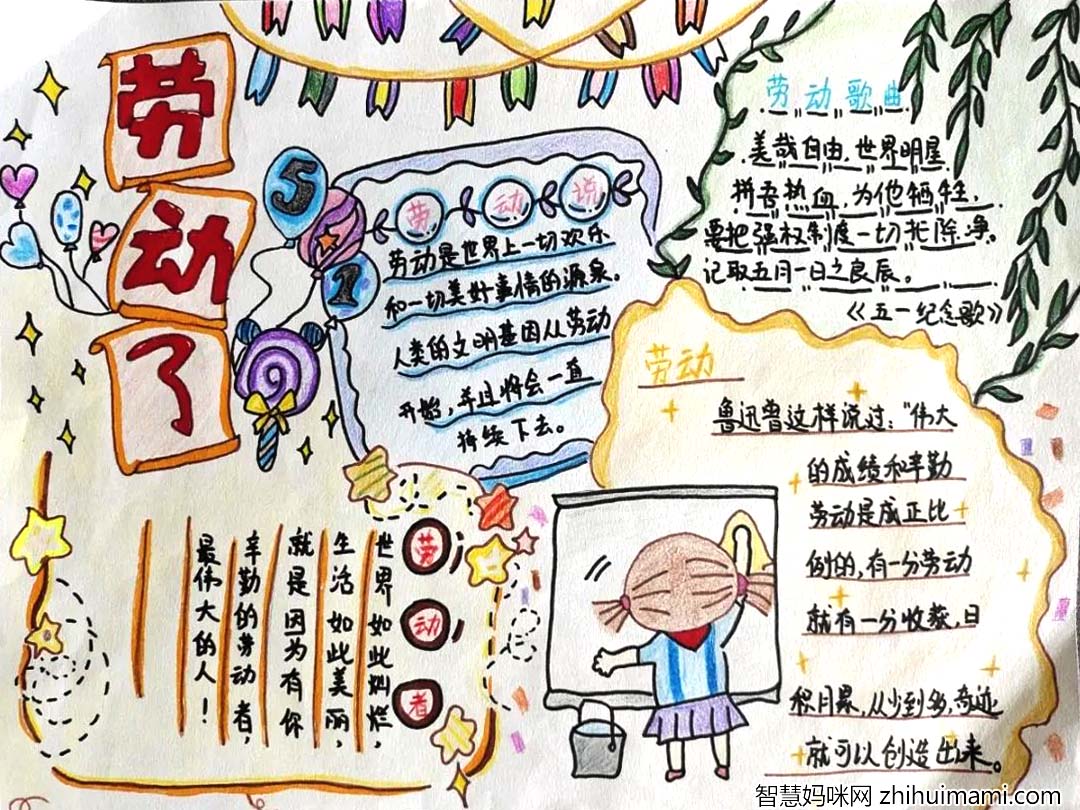 劳
动
了
5
1
劳动说
劳动是世界上一切欢乐
和一切美好事情的源泉。
人类的文明基因从劳动
开始，并且将会一直
持续下去。
劳动歌曲
美哉自由，世界明星
拼吾热血，为他牺牲，
要把强权制度一切扫除净。
记取五月一日之良辰。
《五一纪念歌》
劳动
鲁迅曾这样说过："伟大
的成绩和辛勤
劳动是成正比
例的，有一分劳动
就有一分收获，日
积月累，从少到多，奇迹
就可以创造出来。
劳动者
世界如此灿烂，
生活如此美丽，
就是因为有你
辛勤的劳动者，
最伟大的人！
智慧妈咪网 zhihuimami.com